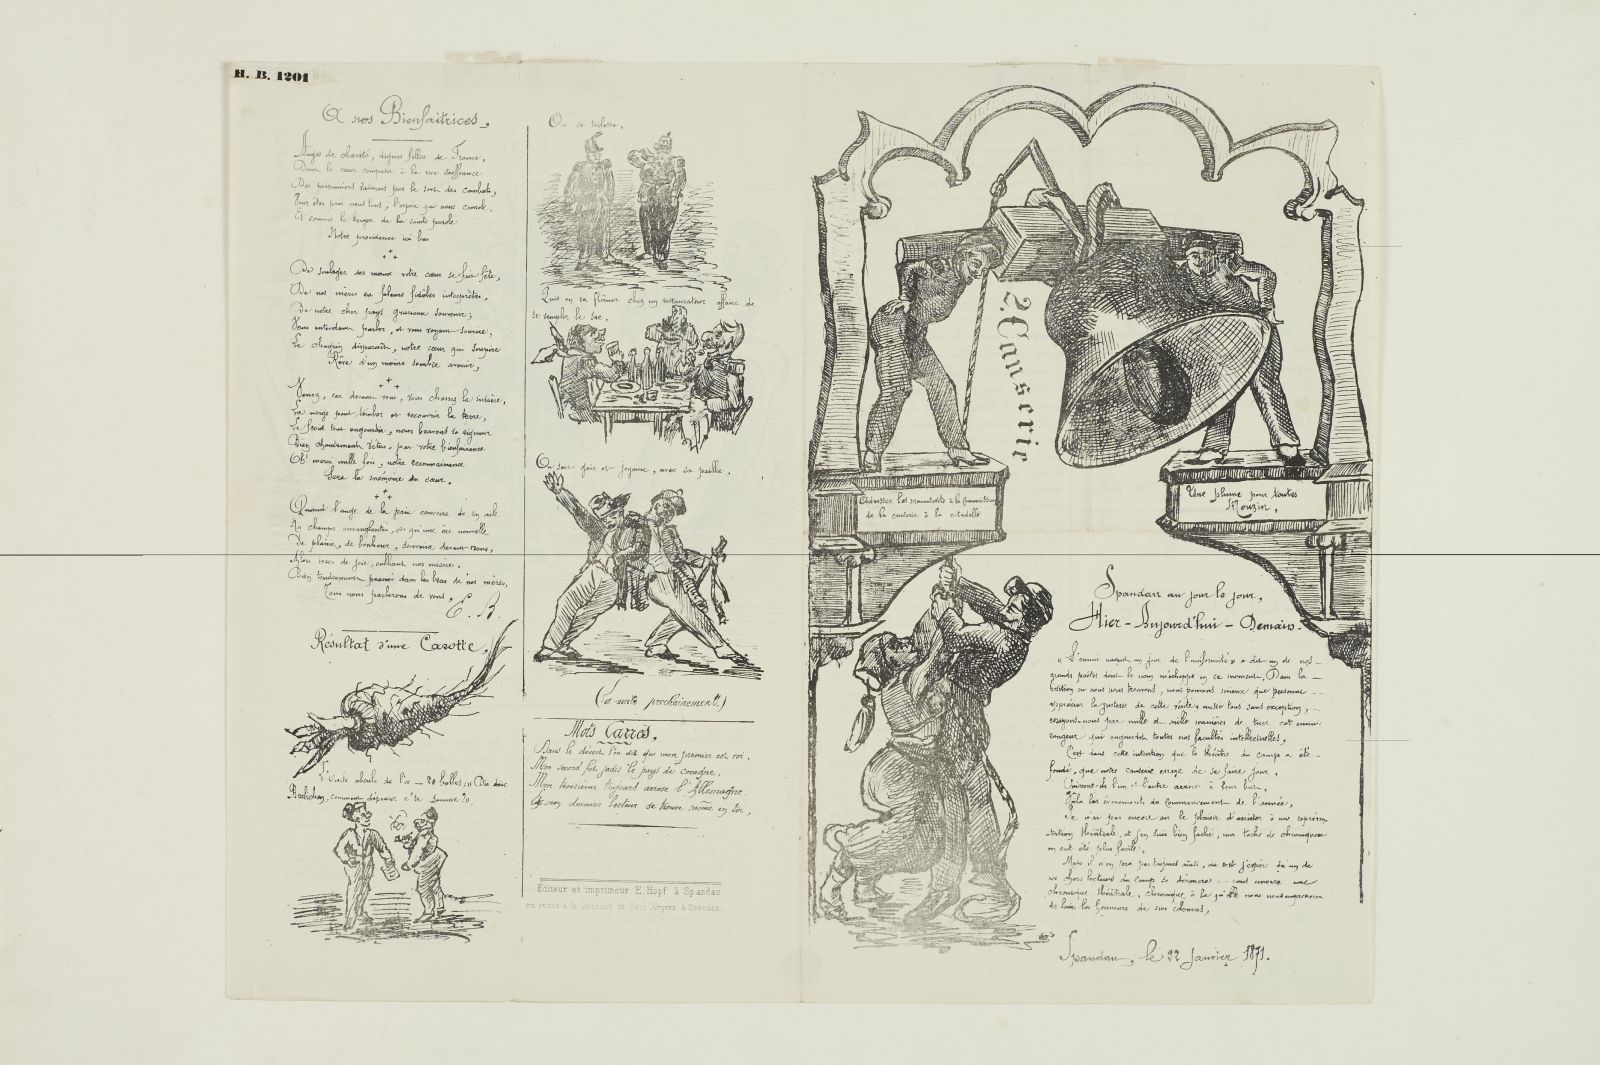 H. B. 1201
A nos Bienfaitrices.
Anges de charité, dignes filles de France,
Dont le cœur compatit à la vive souffrance
Des prisonniers vaincus par le sort des combats,
Vous êtes pour nous tous, l'espoir qui nous console,
Et comme le de la sainte parole
Notre providence ici bas
De soulager ses maux votre cœur se fait fête,
De nos mères en pleurs fidèles interprètes,
De notre cher pays gracieux souvenir;
Vous entendant parler, et vous voyant sourire,
Le chagrin disparaît, notre cœur qui soupire
Rêve d'un moins sombre avenir,
Venez, car devant vous, vous chassez la misère,
La neige peut tomber et recouvrir la terre,
Le froid tout engourdir, nous bravons sa rigueur
Bien chaudement vêtus, par votre bienfaisance
Oh! merci mille fois, notre reconnaissance
Sera la mémoire du cœur.
Quand l'ange de la paix couvrira de son aile
Les champs ensanglantés, et qu'une ère nouvelle
De plaisir, de bonheur, s'ouvrira devant nous,
Alors ivres de joie, oubliant nos misères,
Bien tendrement pressés dans les bras de nos mères,
Tous nous parlerons de vous.
E. B.
Résultat d'une Carotte.
L'Oncle aboule de l'os — 20 balles!! Dis donc
Barbichon, comment dépenser c'te somme?
On se toilette.
Puis on va flâner chez un restaurateur affaire de
se remplir le sac.
On sort gaie et joyeux, avec sa paille.
(La suite prochainement.)
Mots Carrés.
Dans le désert l'on dit que mon premier est roi.
Mon second fut jadis le pays de cocagne.
Mon troisième toujours arrose l'Allemagne.
Et mon dernier lecteur se trouve même en toi.
Éditeur et imprimeur E. Hopf à Spandau
en vente à la librairie de Carl Jürgens à Spandau.
2. Causerie
Adresser les manuscrits à la commission
de la causerie à la citadelle
Une plume pour toutes
Mouzin.
Spandau au jour le jour,
Hier - Aujourd'hui - Demain.
« L'ennui naquit un jour de l'uniformité » a dit un de nos
grands poëtes dont le nom m'échappe en ce moment. Dans la
position où nous nous trouvons, nous pouvons mieux que personne
apprécier la justesse de cette vérité, aussi tous sans exception,
essayons-nous par mille et mille manières de tuer cet ennui
rongeur qui engourdit toutes nos facultés intellectuelles.
C'est dans cette intention que le théâtre du camp a été
fondé, que notre causerie essaye de se faire jour.
Puissent-ils l'un et l'autre arriver à leur but.
Voilà les évènements du commencement de l'année.
Je n'ai pas encore eu le plaisir d'assister à une représen
-tation théâtrale, et j'en suis bien fâché, ma tâche de chroniqueur
en eut été plus facile.
Mais il n'en sera pas toujours ainsi, car j'espère qu'un de
nos chers lecteurs du camp se dévouera et nous enverra une
chronique théâtrale, chronique à la quelle nous nous empresserons
de faire les honneurs de nos colonnes,
Spandau, le 22 Janvier 1871.